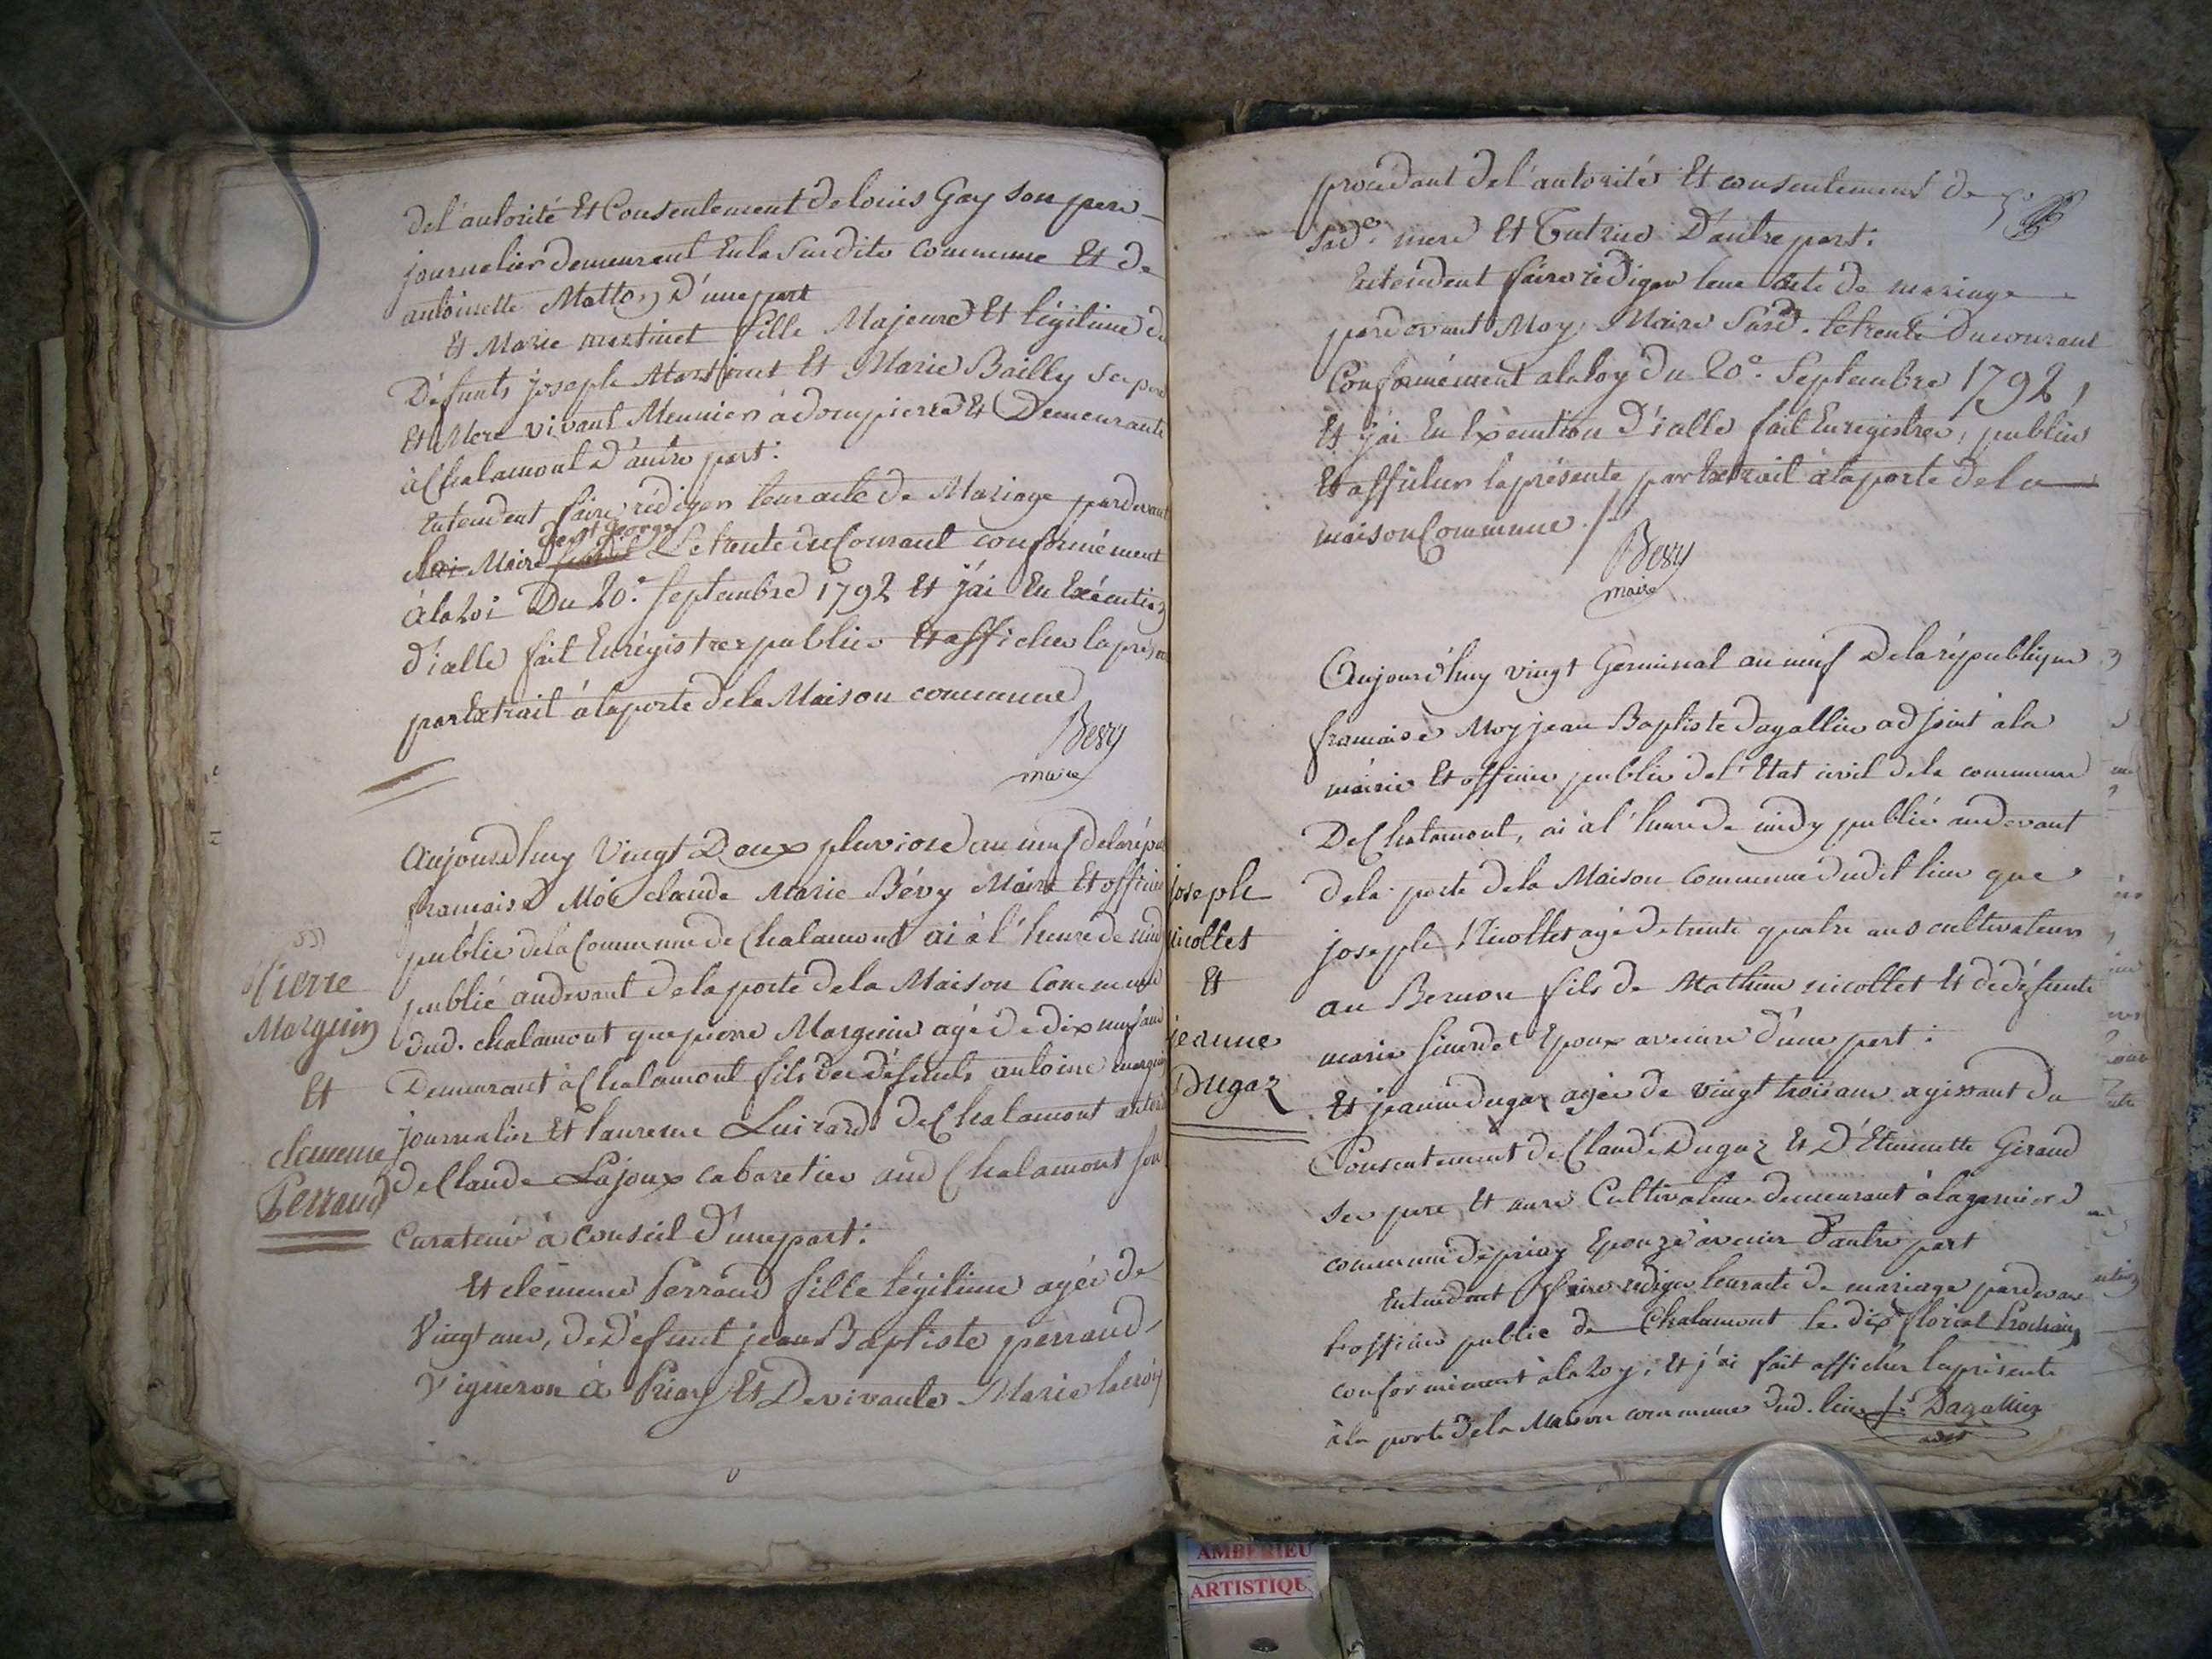 de l'autorité Et Consentement de louis Gay son pere
journalier demeurant En la Susdite commune Et de
antoinette Matton D'une part
Et Marie martinet fille Majeure Et légitime de
Défunts joseph Martinet Et Marie Bailly ses pere
Et Mere vivant Meunier à dompierre Et Demeurante
à Chalamont d'autre part:
Entendent faire rédiger leur acte de Mariage pardevant
de st George
Maire Le trente du Courant conformément
à la Loi Du 20.e septembre 1792 Et j'ai En Exécution
d'icelle fait Enrégistrer publier Et afficher la présente
par Extrait à la porte de la Maison commune
Bevy
maire
Aujourdhuy Vingt Deux pluviose an neuf de la répub
francaise Moi claude Marie Bévy Maire Et officier
public de la Commune de Chalamont ai à l'heure de midy
publié audevant de la porte de la Maison Commune
dud. chalamont que pierre Marguin agé de dix neuf ans
Demeurant à Chalamont fils de défunts antoine marguin
journalier Et laurence Luizard de Chalamont autorisé
de Claude Lajoux cabaretier aud Chalamont son
Curateur à conseil d'une part:
Et clémence Perraud fille légitime agée de
Vingt ans, de Défunt jean Baptiste perraud
Vigneron à Priay Et De vivante Marie lacroix
Pierre
Marguin
Et
clemence
Perraud
procedant de l'autorité Et consentement de
sad.e mere Et Tutrice D'autre part:
Entendent faire rédiger leur acte de mariage
pardevant Moy Maire Susd. le trente du courant
Conformément à la loy du 20.e Septembre 1792,
Et j'ai En Exécution D'icelle fait Enregistrer, publier
Et afficher la présente par Extrait à la porte de la
maison Commune ./.
Bevy
maire
Aujourd'huy vingt Germinal an neuf de la république
francaise Moy jean Baptiste Dagallier adjoint à la
mairie Et officier public de l'Etat civil de la commune
De Chalamont, ai à l'heure de midy publié au devant
de la porte de la Maison commune dudit lieu que
joseph Nicollet agé de trente quatre ans cultivateur
au Bernon fils de Mathieu nicollet Et de défunte
marie Epoux avenir d'une part:
Et jeanne dugaz agée de vingt trois ans agissant du
Consentement de Claude Dugaz Et D'Etiennette Giraud
ses pere Et mere Cultivateurs demeurant à la
commune de priay Epouze avenir d'autre part
Entendent faire rediger leur acte de mariage pardevant
l'officier public de Chalamont le dix floréal prochain
conformément à la Loy, Et j'ai fait afficher la présente
à la porte de la Maison commune dud. lieu Dagallier
adjt
joseph
nicollet
Et
jeanne
Dugaz
AMBERIEU
ARTISTIQU